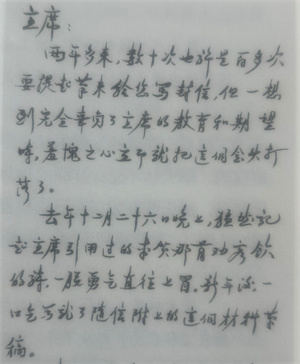 主席：
两年多来，数十次也许是百多次
要提起笔来给您写封信，但一想
到完全辜负了主席的教育和期望
时，羞愧之心立即就把这个念头打
落了。
去年十二月二十六日晚上，独然记
起主席引用过的李贺那首劝客饮
的诗，一股勇气直往上冒，新年后，一
口气写就了随信附上的这个材料草
稿。